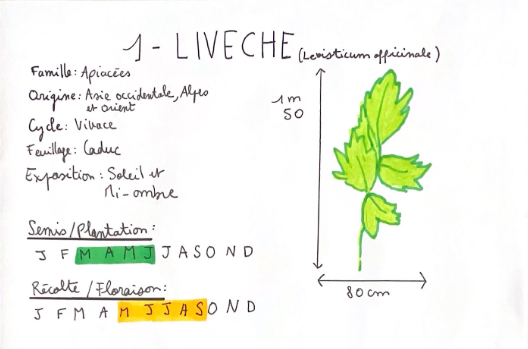 1 - LIVECHE (Levisticum officinale)
Famille: Apiacées
Origine: Asie occidentale, Alpes
et orient
Cycle: Vivace
Feuillage: Caduc
Exposition: Soleil et
Mi-ombre
1m
50
Semis/Plantation:
J F M A M J J A S O N D
Récolte/Floraison:
J F M A M J J A S O N D
80cm